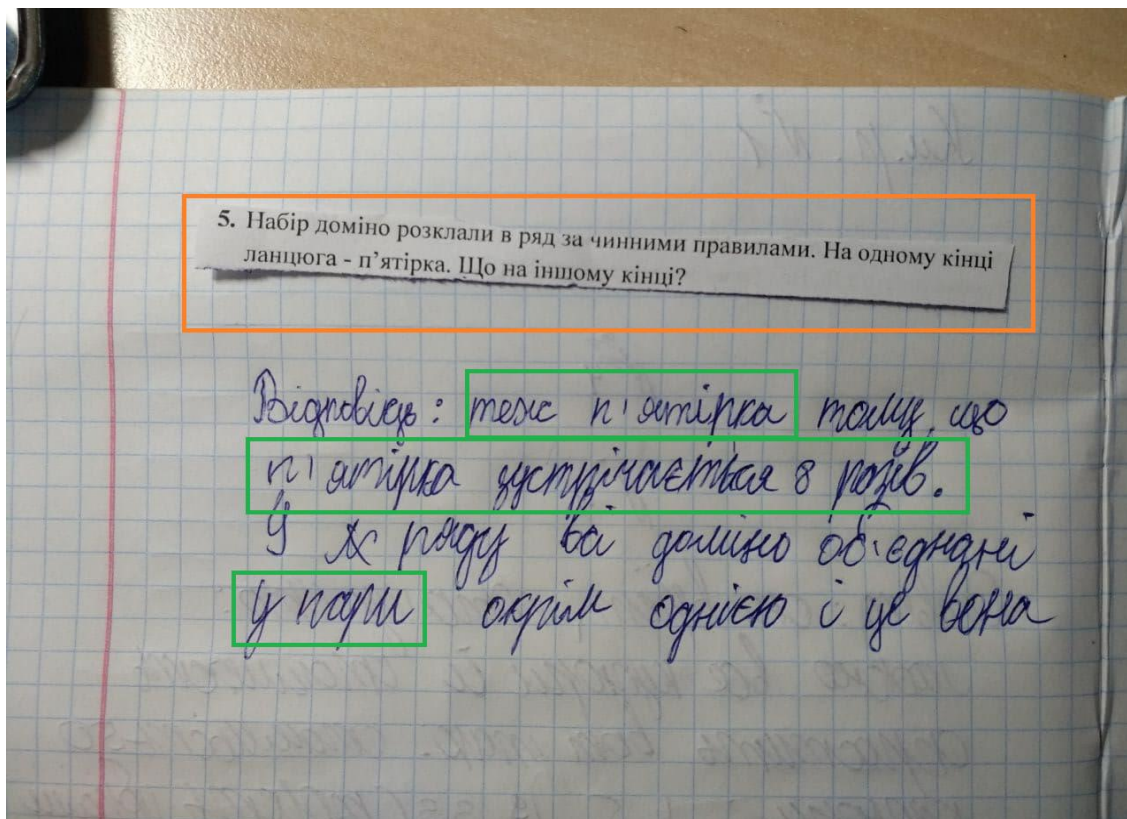 5. Набір доміно розклали в ряд за чинними правилами. На одному кінці
ланцюга - п’ятірка. Що на іншому кінці?
Відповідь: теж п'ятірка тому, що
п'ятірка зустрічається 8 разів.
У ряду всі доміно об'єднані
у пари окрім однією і це вона